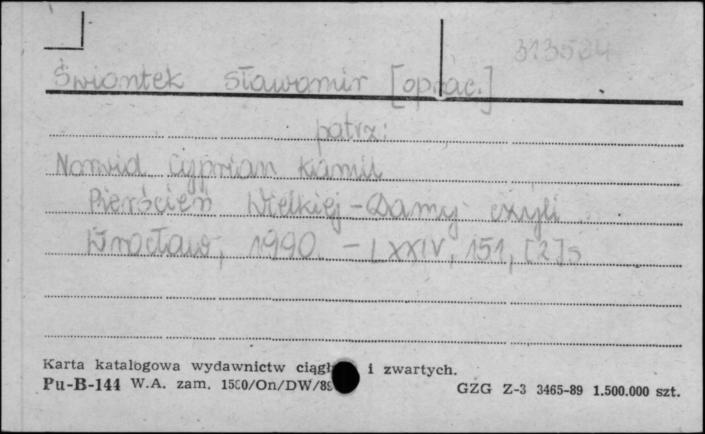 313524
Świontek Sławomir [oprac.]
patrz:
Norwid Cyprian Kamil
Pierścień Wielkiej-Damy czyli
Wrocław, 1990. - LXXIV, 151, [2]s
Karta katalogowa wydawnictw ciągł i zwartych.
Pu-B-144 W.A. zam. 1500/On/DW/89
GZG Z-3 3465-89 1.500.000 szt.